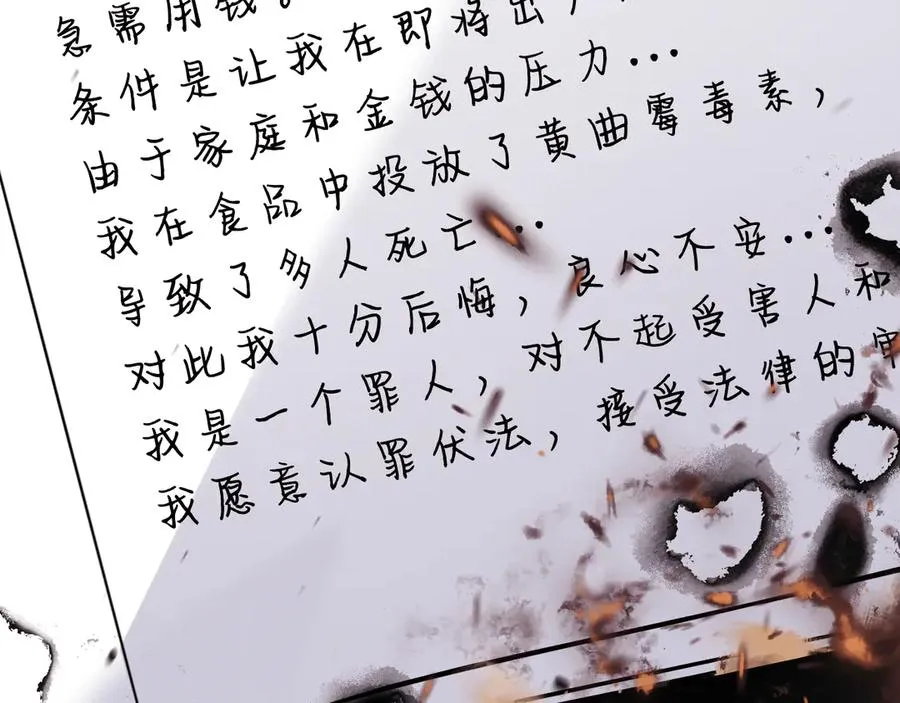 急需用钱。
条件是让我在即将出
由于家庭和金钱的压力...
我在食品中投放了黄曲霉毒素，
导致了多人死亡...
对此我十分后悔，良心不安...
我是一个罪人，对不起受害人和
我愿意认罪伏法，接受法律的审